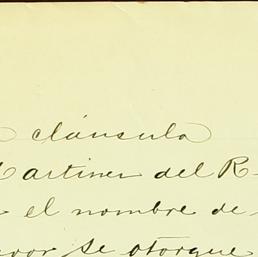 cláusula
Martinez del R
el nombre de
se otorgue